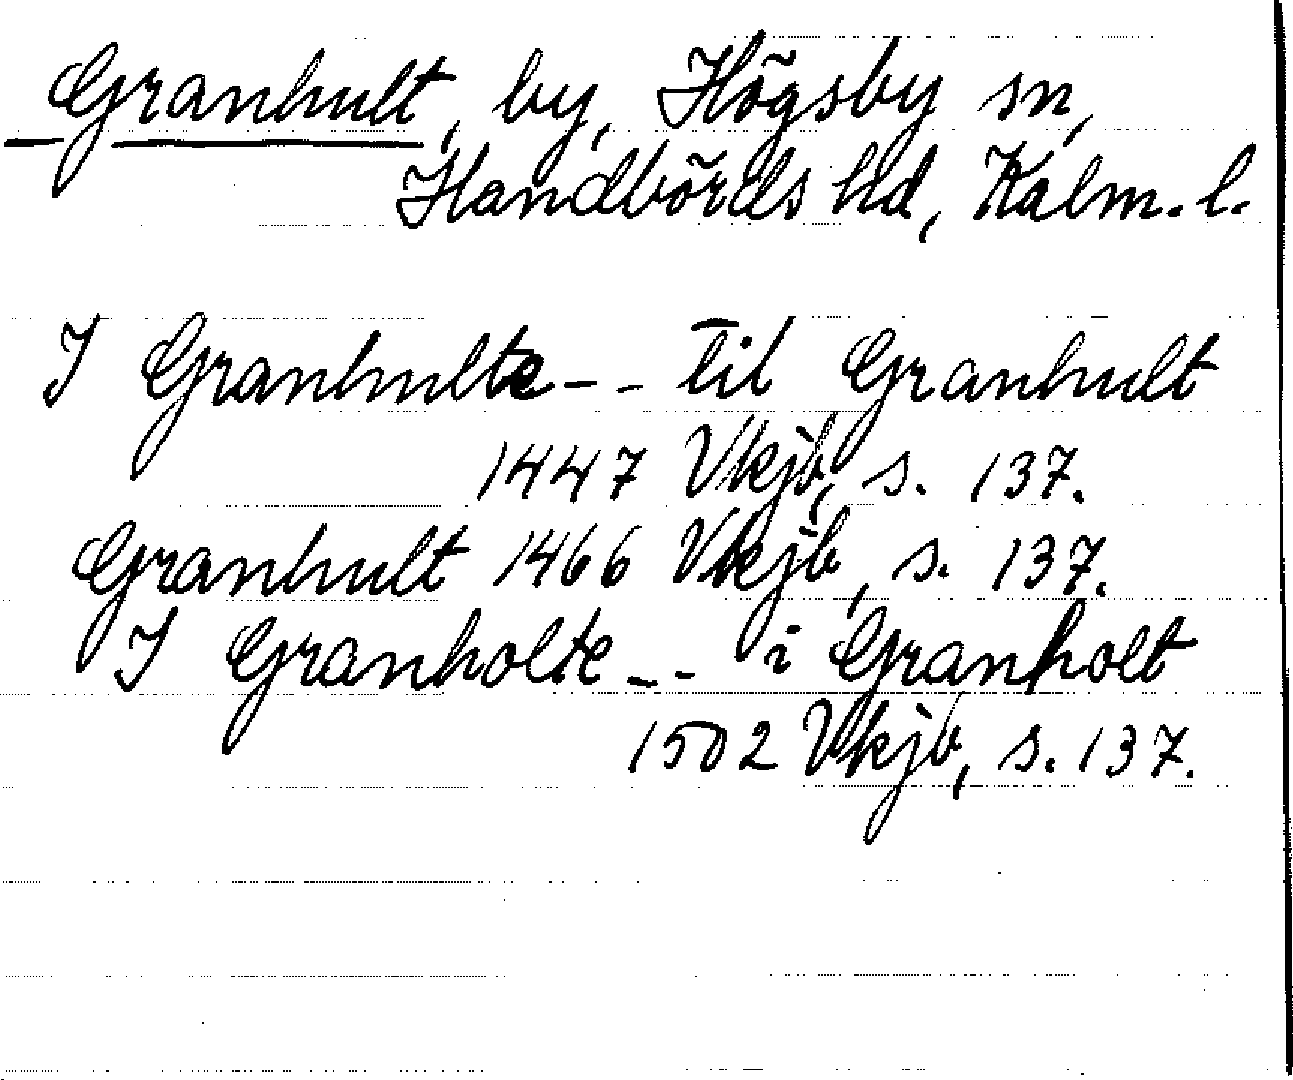 Granhult, by, Högsby sn,
Handbörds hd, Kalm. l.
I Granhulte -- til Granhult
1447 Vkjb, s. 137.
Granhult 1466 Vkjb, s. 137.
I Granholte -- i Granholt
1502 Vkjb, s. 137.